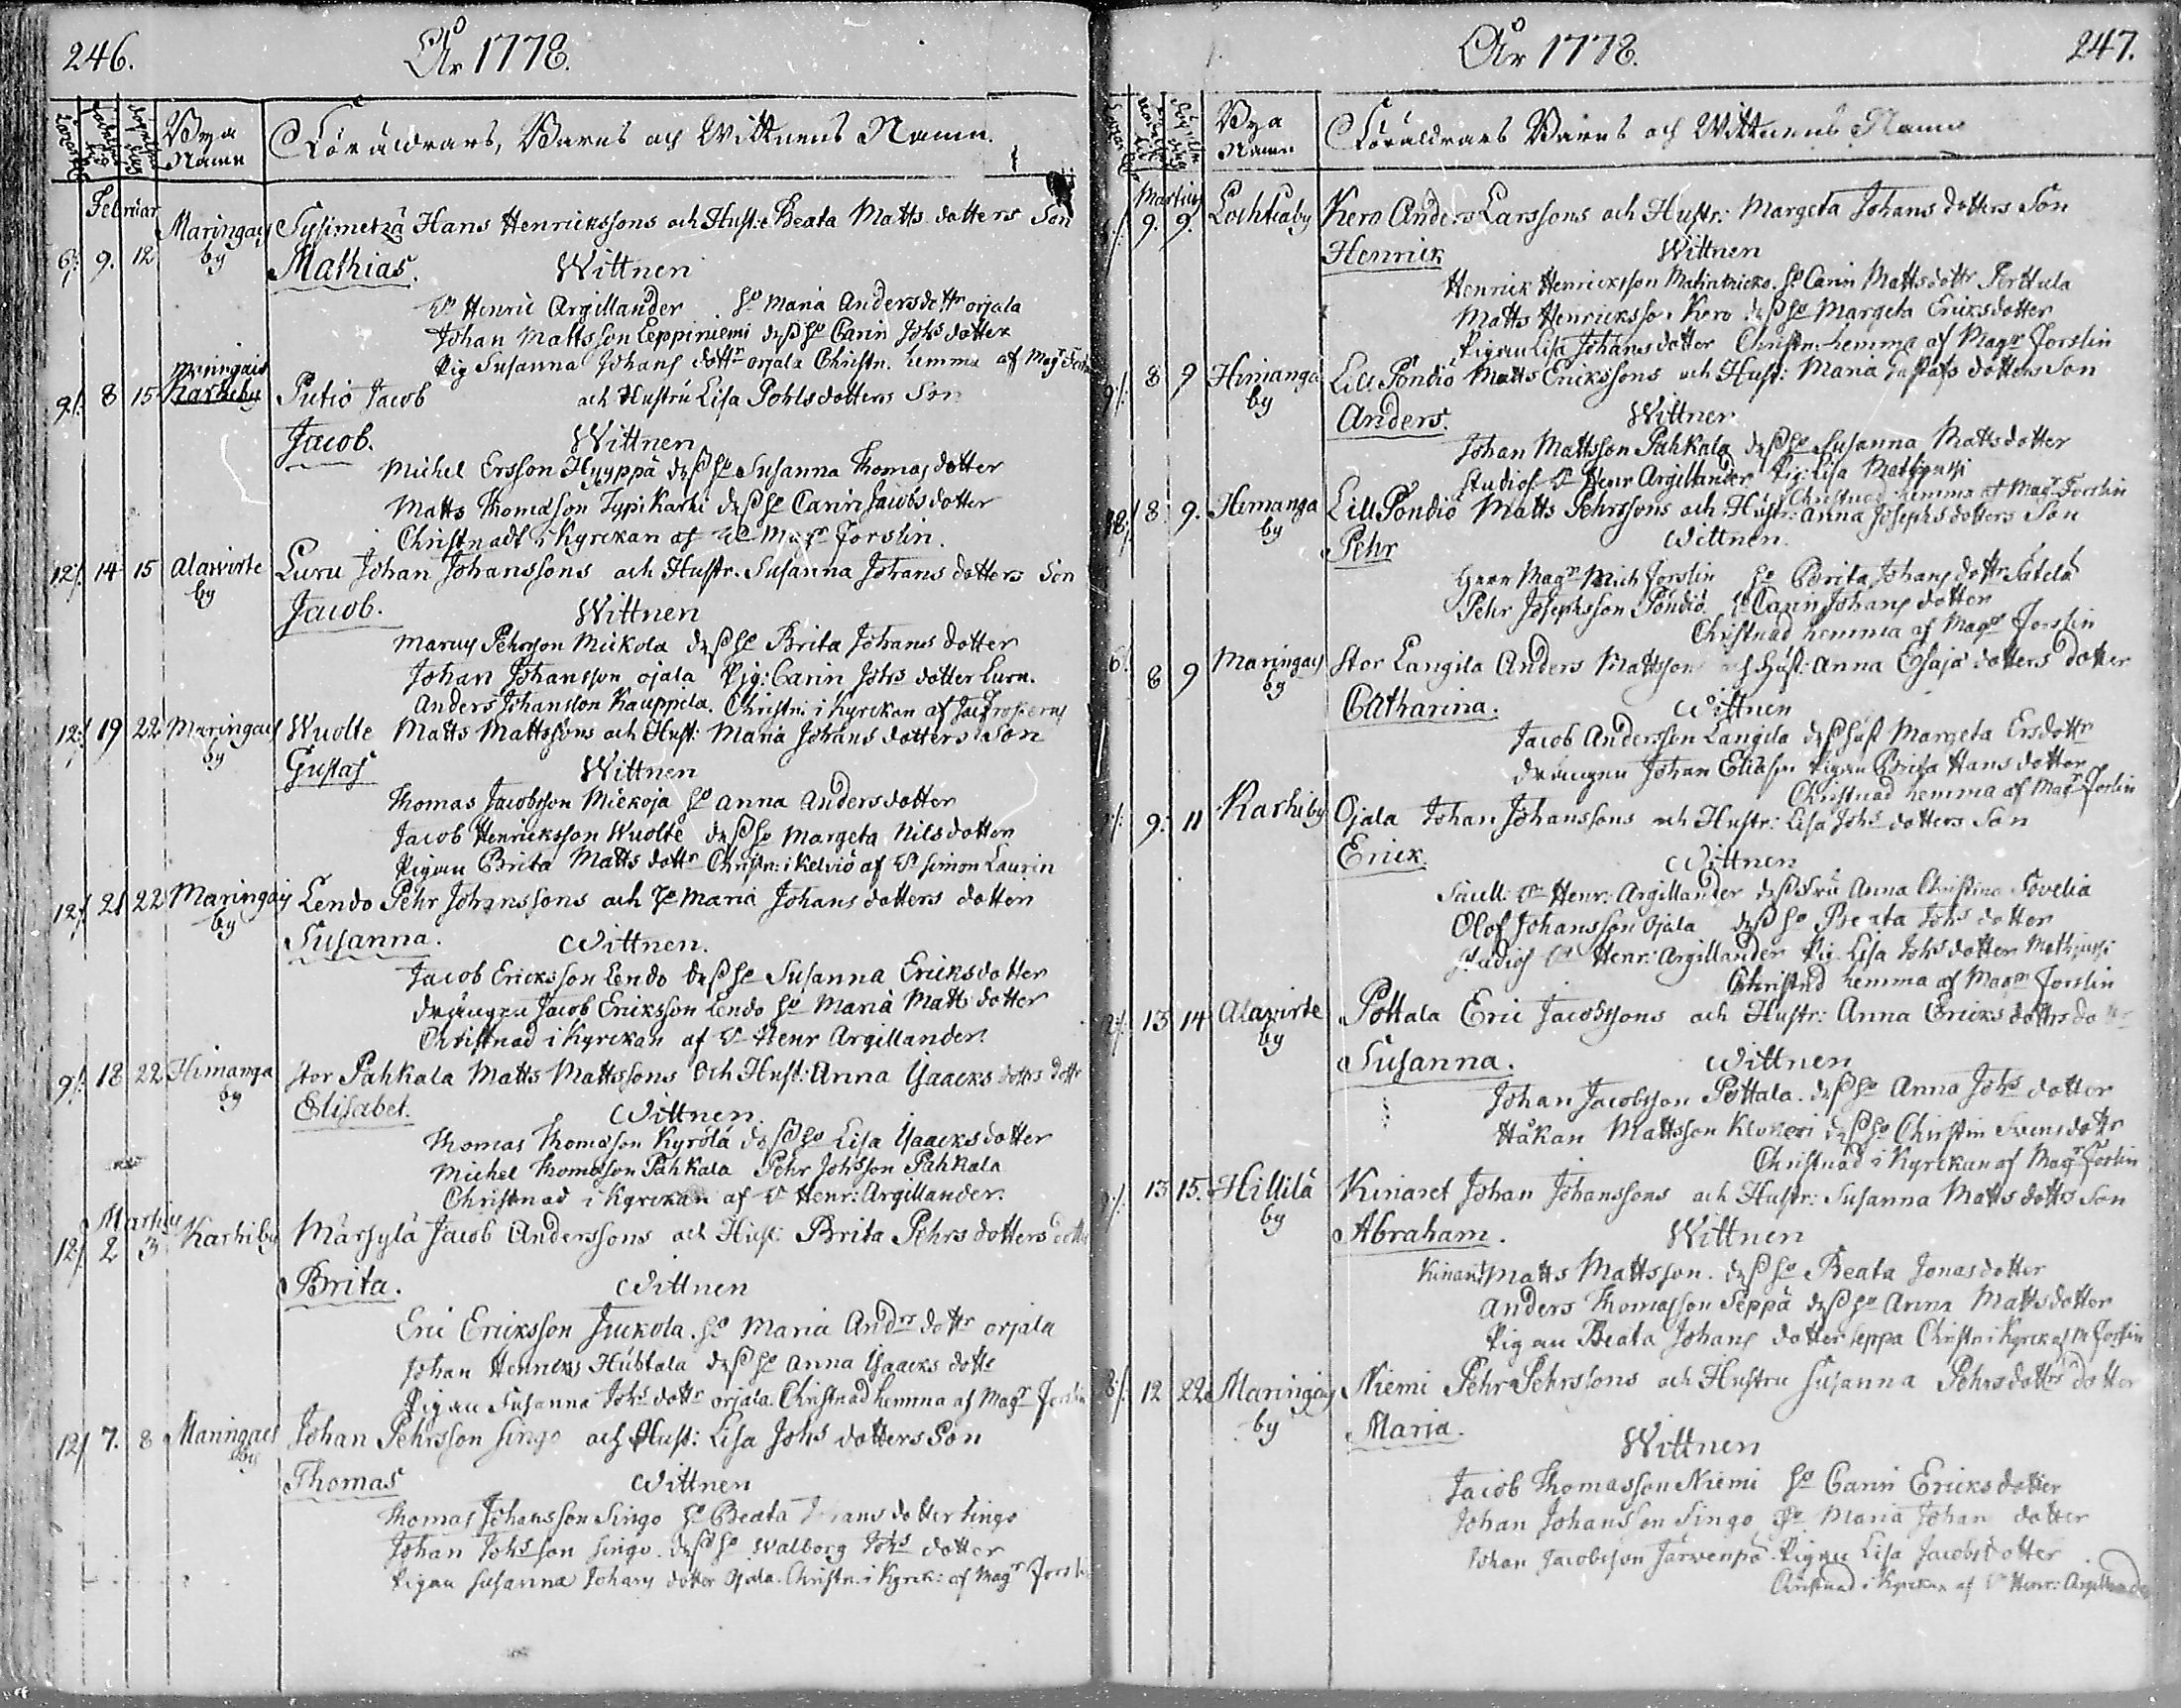 246.
År 1778.
Bya Namn
Föräldrars, Barns och Wittnens Namn.
Februar
6/. 9. 12 Maringais by Sysimetzä Hans Henrickssons och Hust: Beata Matts dotters Son
Mathias. Wittnen
Hr Henric Argillander. Ho Maria Andersdottr orjala
Johan Mattsson Leppiniemi dess ho Carin Johs dotter
Pig Susanna Johans dottr orjala Christn. hemma af Magr
Maringais
9/. 8 15 Karhiby Putio Jacob och Hustru Lisa Pohlsdotters Son
Jacob. Wittnen
Michel Ersson Hyyppä dess ho Susanna Thomas dotter
Matts Thomasson Typi Karhi dess ho Carin Jacobs dotter
Christnadt i Kyrckan af Hr Magr Forslin.
12/. 14 15 Alawirte by Luru Johan Johanssons och Hustr. Susanna Johans dotters Son
Jacob. Wittnen
Marcus Pehrsson Mickola dess ho Brita Johans dotter
Johan Johansson ojala Pig: Carin Johs dotter Luru.
Anders Johansson Kauppila. Christn: i Kyrckan af
12/. 19 22 Maringais by Wuolte Matts Mattssons och Hust: Maria Johans dotters Son
Gustaf Wittnen
Thomas Jacobsson Mickoja ho Anna Andersdotter
Jacob Henricksson Wuolte dess ho Margeta Nilsdotter
Pigan Brita Matts dottr Christn: i Kelviö af Hr Simon Laurin
12/. 21 22 Maringais by Lendo Pehr Johanssons och ho Maria Johans dotters dotter
Susanna. Wittnen.
Jacob Ericksson Lendo dess ho Susanna Ericksdotter
Drängen Jacob Ericksson Lendo ho Maria Matts dotter
Christnad i Kyrckan af Hr Henr Argillander.
9/. 18 22 Himanga by Stor Pahkala Matts Mattssons och Hust: Anna Isaacks dottrs dottr
Elisabet. Wittnen
Thomas Thomasson Kyrölä dess ho Lisa Isaacksdotter
Michel Thomasson Pahkala Pehr Johsson Pahkala
Christnad i Kyrckan af Hr Henr: Argillander.
Martius
12/. 2 3 Karhiby Märsylä Jacob Anderssons och Hust: Brita Pehrs dotters
Brita. Wittnen
Eric Ericksson Juckola. ho Maria Andrs dottr orjala
Johan Henricks Huhtala dess ho Anna Isaacks dottr
Pigan Susanna Johs dottr orjala. Christnad hemma af Magr
12/. 7. 8 Maringais by Johan Pehrsson Singo och Hust: Lisa Johs dotters Son
Thomas Wittnen
Thomas Johansson Singo ho Beata dotter Singo
Johan Johsson Singo. dess ho Walborg Johs dotter
Pigan Susanna Johans dotter Ojala. Christn. i Kyrck: af Magr
År 1778.
247.
Bya Namn
Föräldrars Barns och Wittnens Namn
Martius
9. 9. Lochteaby Kero Anders Larssons och Hustr: Margeta Johans dotters Son
Henrick Wittnen
Henrick Henricksson ho Carin Mattsdottr Perttula
Matts Henricksson Kero dess ho Margeta Ericksdotter
Pigan Lisa Johans dotter Christn: hemma af Magr Forslin
9/. 8 9 Himanga by Lill Pöndiö Matts Erickssons och Hust: Maria Gustafs dotters Son
Anders. Wittnen
Johan Mattsson Pahkala dess ho Susanna Mattsdotter
Studios: Hr Henr Argillander Pig: Lisa
Christnad hemma af Magr Forslin
8. 9. Himanga by Lill Pöndiö Matts Pehrssons och Hustr: Anna Josephs dotters Son
Pehr Wittnen.
Herr Magr Mich Forslin ho Brita Johans dottr
Pehr Josephsson Pöndiö ho Carin Johans dotter
Christnad hemma af Magr Forslin
6. 8 9 Maringais by Stor Langila Anders Mattsson och Hust: Anna Esaja dotters dotter
Catharina. Wittnen
Jacob Andersson Langila dess hust Margeta Ersdottr
Drängen Johan Eliasson Pigan Brita Hans dotter
Christnad hemma af Magr Forslin
9. 11 Karhiby Ojala Johan Johanssons och Hustr: Lisa Johs dotters Son
Erick Wittnen
Hr Henr: Argillander dess fru Anna Christina
Olof Johansson Ojala dess ho Beata Johs dotter
Studios Hr Henr: Argillander Pig: Lisa Johs dotter
Christnd hemma af Magr Forslin
13 14 Alawirte by Pöttala Eric Jacobssons och Hustr: Anna Ericks dottrs
Susanna. Wittnen
Johan Jacobsson Pöttala. dess ho Anna Johs dotter
Håkan Mattsson dess ho Christin Svensdottr
Christnad i Kyrckan af Magr Forslin
13 15. Hillilä by Kinaret Johan Johanssons och Hustr: Susanna Matts dottrs Son
Abraham. Wittnen
Kinart Matts Mattsson. dess ho Beata Jonasdotter
Anders Thomasson Seppä dess ho Anna Mattsdotter
Pigan Beata Johans dotter Seppä Christn i Kyrck af M Forslin
12 22 Maringais by Niemi Pehr Pehrssons och Hustru Susanna Pehrsdottrs dotter
Maria. Wittnen
Jacob Thomasson Niemi ho Carin Ericksdotter
Johan Johansson Singo ho Maria Johan dotter
Johan Jacobsson Järvenpä. Pigan Lisa Jacobsdotter
Christnad i Kyrckan af Hr Henr: Argillander